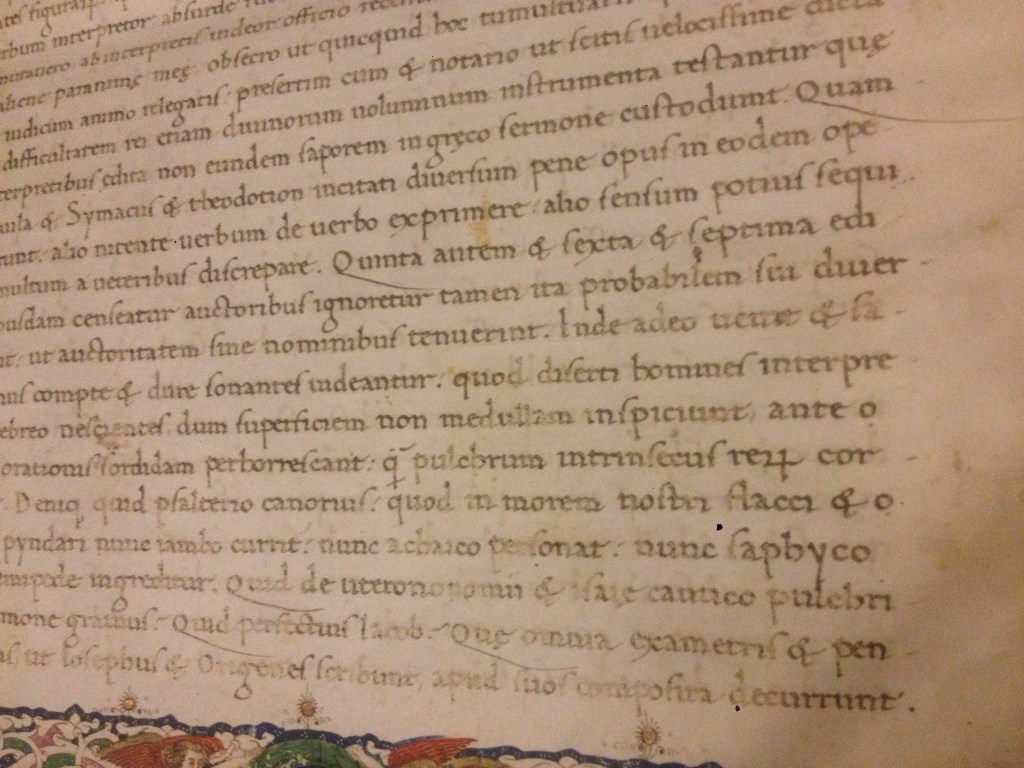 figurar
rbum interpretor absurde
ab interpretis uideor officio
paranimę meę obsecro ut quicquid hoc tumultuarii
iudicum animo relegatis. presertim cum & notario ut scitis uelocissime dicta
difficultatem rei etiam diuinorum uoluminum instrumenta testantur quę
terpretibus edita non eundem saporem in gręco sermone custodiunt. Quam
uila & Symacus & theodotion incitati diuersum pene opus in eodem ope
runt. alio nitente uerbum de uerbo exprimere. alio sensum potius sequi.
multum a ueteribus discrepare. Quinta autem & sexta & septima edi
busdam censeatur auctoribus ignoretur tamen ita probabilem sui diuer
nt. ut auctoritatem sine nominibus tenuerint. Inde adeo & sa
nus compte & dure sonantes uideantur. quod diserti homines interpre
ebreo nescientes dum superficiem non medullam inspiciunt, ante o
orationis sordidam perhorrescant. q̄ pulchrum intrinsecus reꝝ cor
. Deniq quid psalterio canorius. quod in morem nostri flacci & o
pyndari nunc iambo currit. nunc achaico personat. nunc saphyco
ipede ingreditur. Quid de uterononomii & isaie cantico pulchri
mone grauius. Quid perfectius Iacob. Quę omnia exametris & pen
is ut Iosephus & Origenes scribunt, apud suos composita decurrunt.